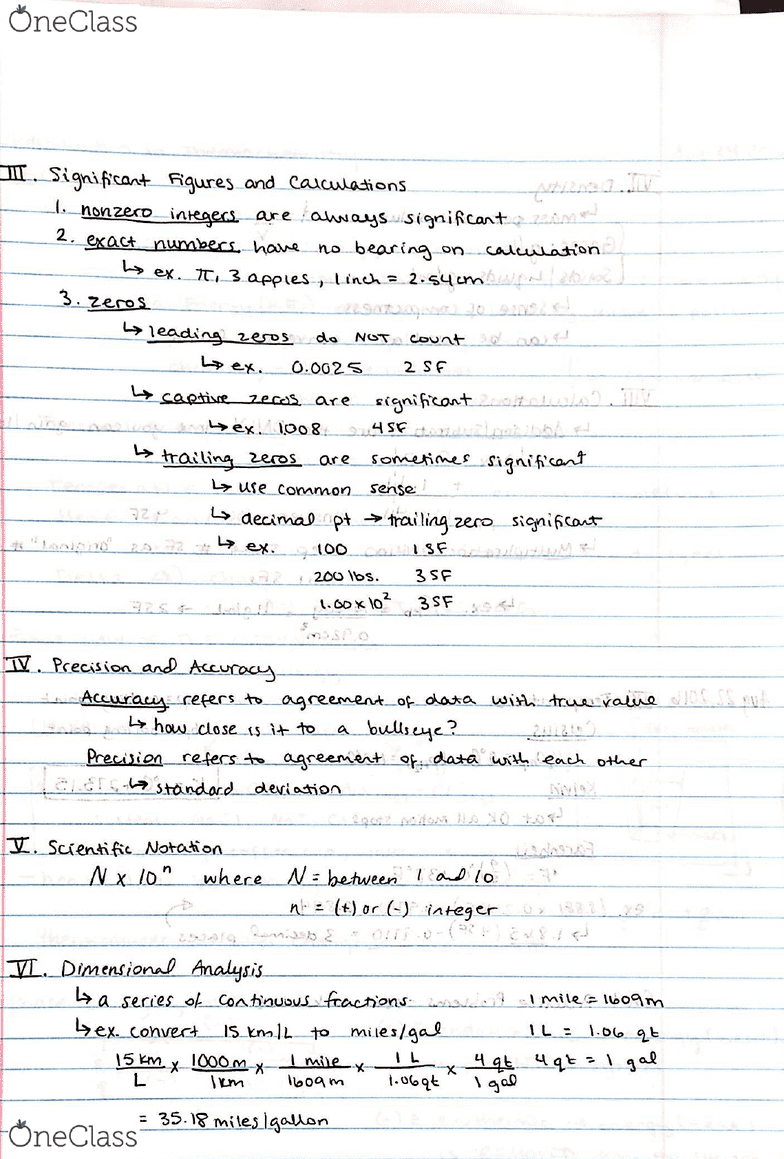 OneClass
III. Significant Figures and Calculations
1. nonzero integers are always significant
2. exact numbers have no bearing on calculation
↳ ex. π, 3 apples, 1 inch = 2.54cm
3. zeros
↳ leading zeros do NOT count
↳ ex. 0.0025 2 SF
↳ captive zeros are significant
↳ ex. 1.008 4 SF
↳ trailing zeros are sometimes significant
↳ use common sense
↳ decimal pt → trailing zero significant
↳ ex. 100 1 SF
200 lbs. 3 SF
1.00 x 10² 3 SF
IV. Precision and Accuracy
Accuracy refers to agreement of data with true value
↳ how close is it to a bullseye?
Precision refers to agreement of data with each other
↳ standard deviation
V. Scientific Notation
N x 10ⁿ where N = between 1 and 10
n = (+) or (-) integer
VI. Dimensional Analysis
↳ a series of continuous fractions 1 mile = 1609m
↳ ex. convert 15 km/L to miles/gal 1 L = 1.06 qt
15 km/L x 1000m/1km x 1 mile/1609m x 1 L/1.06qt x 4 qt/1 gal 4 qt = 1 gal
= 35.18 miles/gallon
OneClass